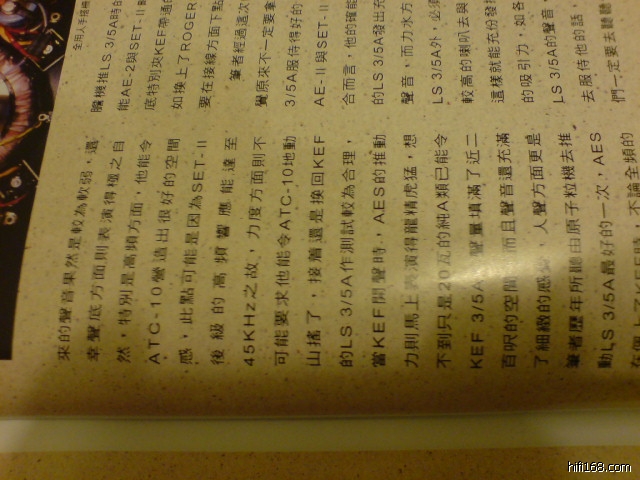 來的聲音果然是較為軟弱，還
幸聲底方面則表演得極之自
然，特別是高頻方面，他能令
ATC-10營造出很好的空間
感，此點可能是因為SET-II
後級的高頻響應能達至
45KHz之故，力度方面則不
可能要求他能令ATC-10地動
山搖了，接着還是換回KEF
的LS 3/5A作測試較為合理，
當KEF開聲時，AES的推動
力則馬上表演得龍精虎猛，想
不到只是20瓦的純A類已能令
KEF 3/5A聲量填滿了近二
百呎的空間，而且聲音還充滿
了細緻的感染，人聲方面更是
筆者歷年所聽由原子粒機去推
動LS 3/5A最好的一次，AES
不論全頻的
全用人手搭棚
膽機推LS 3/5A時的
能AE-2與SET-II
底特別夾KEF帶
如換上了ROGER
要在接線方面下點
筆者經過這次
覺原來不一定要拿
3/5A服侍得好的
AE-II與SET-II
合而言，他的確能
的LS 3/5A發出充
聲音，而力水方
LS 3/5A外，必須
較高的喇叭去與
這樣就能充份發揮
的吸引力，如各
LS 3/5A的聲音
去服侍他的話，
們一定要去聽聽
hifi168.com